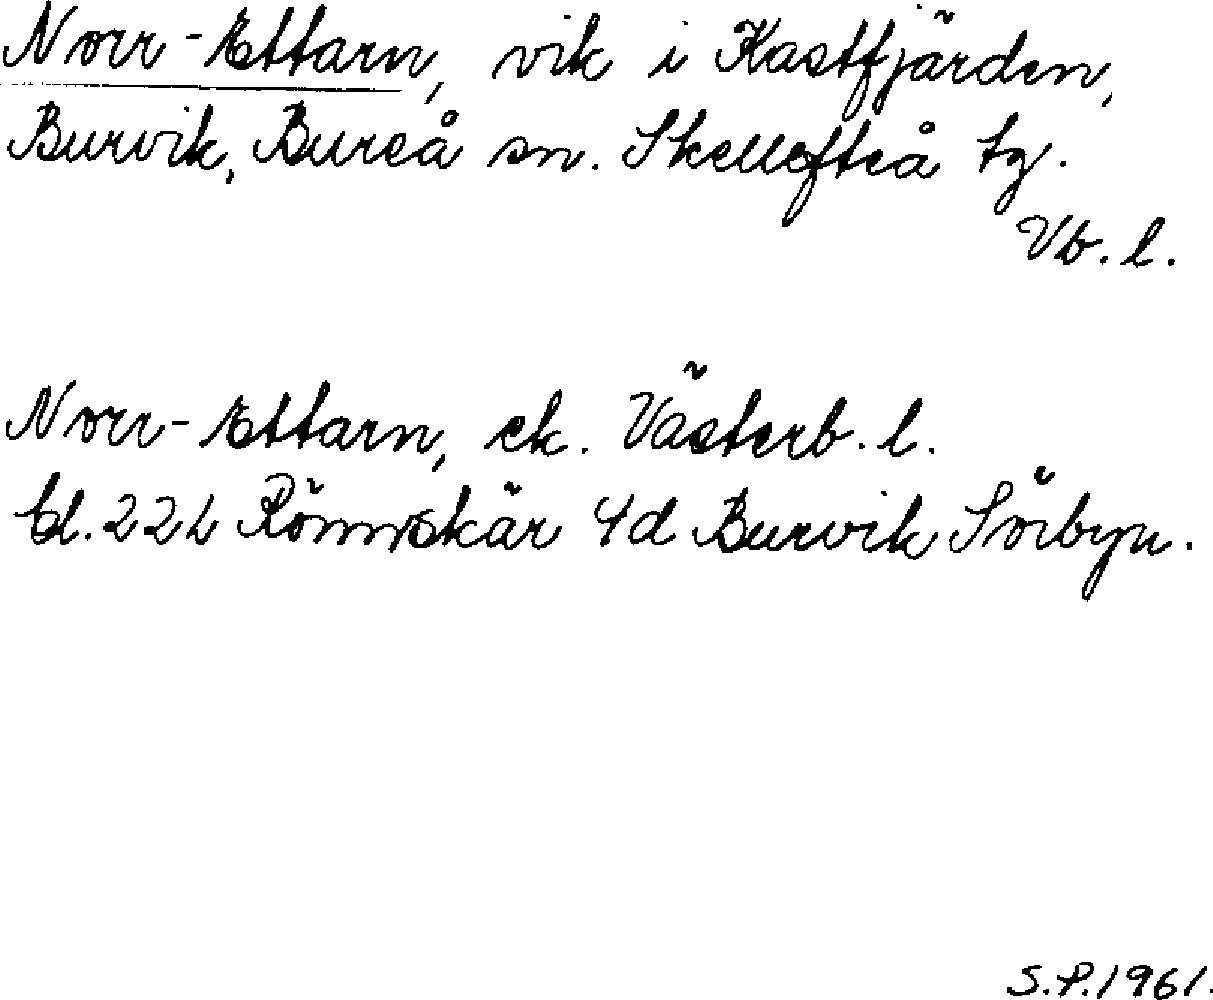 Norr-Ettarn, vik i Kastfjärden,
Burvik, Bureå sn. Skellefteå tg.
Vb. l.
Norr-Ettarn, ek. Västerb. l.
bl. 22L Rönnskär 4d Burvik Sörbyn.
S.P.1961.